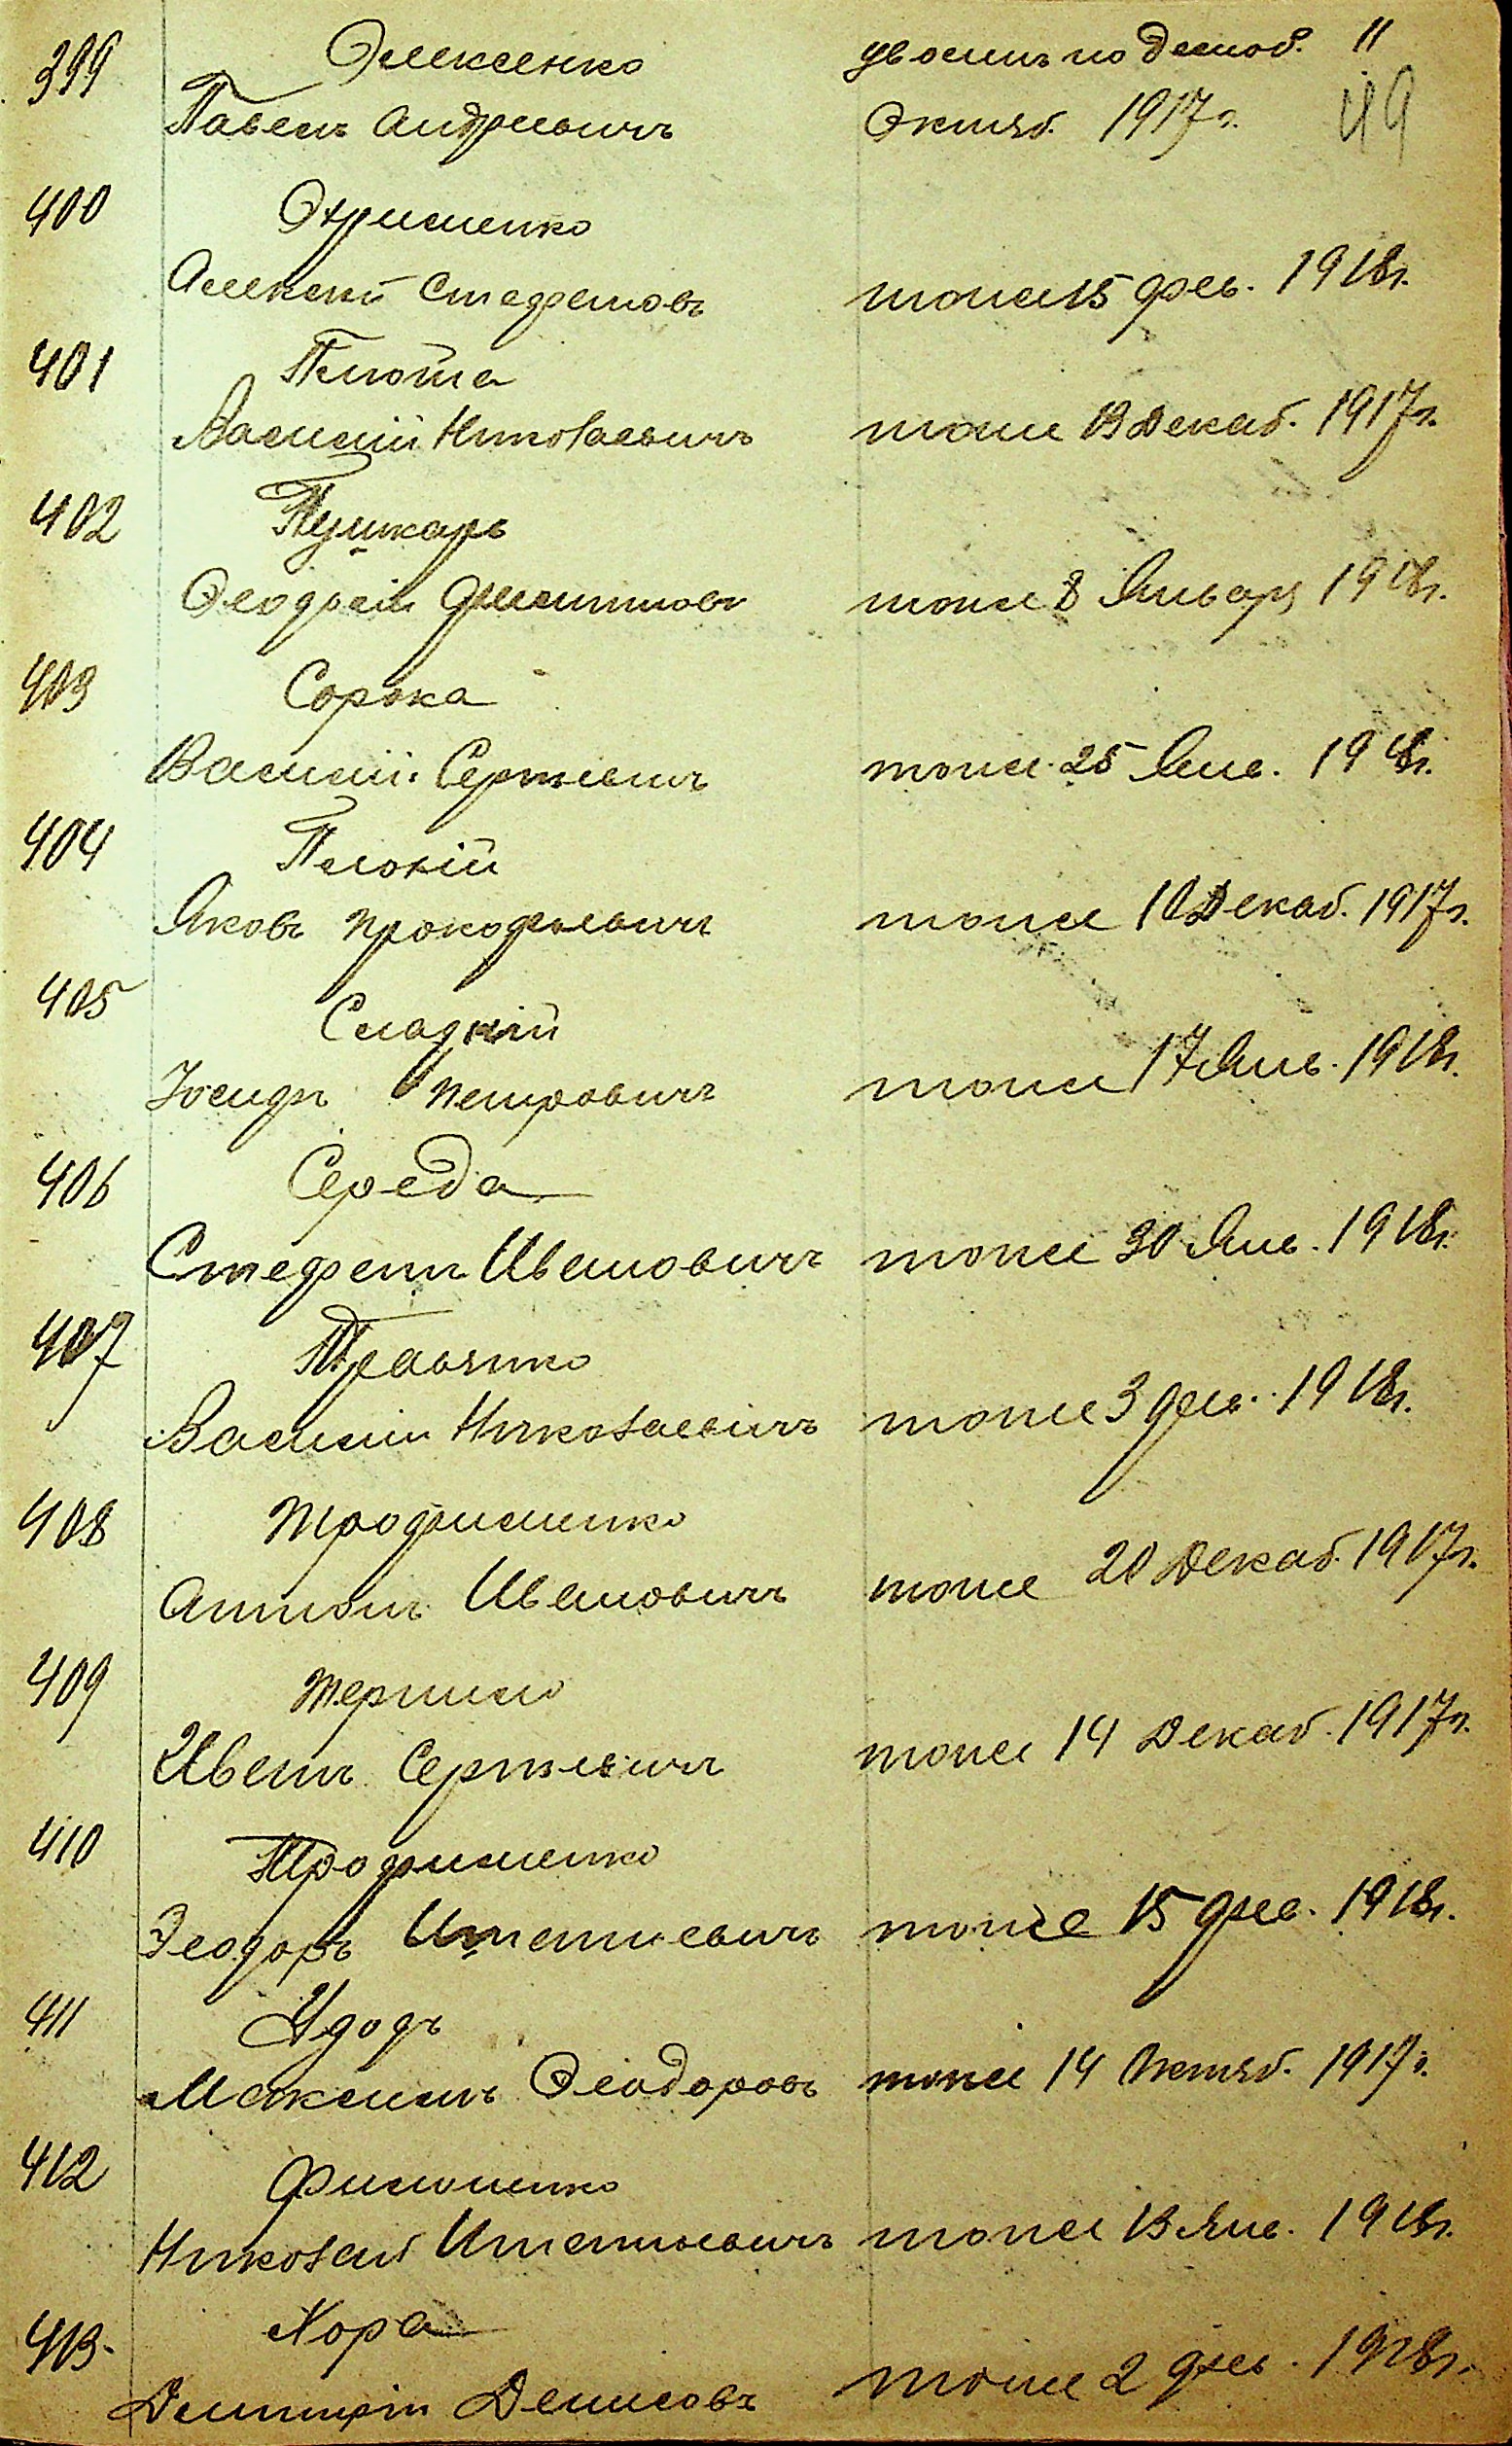 399 Олексенко уволенъ по демоб. 11
Павелъ Андреевичъ Октяб. 1917 г. 49
400 Охрименко
Алексей Стефановъ тоже 15 фев. 1918 г.
401 Плюта
Василий Николаевичъ тоже 13 Декаб. 1917 г.
402 Пушкарь
тоже 8 Января 1918 г.
403 Сорока
Василий Сергеевичъ тоже 25 Янв. 1918 г.
404
Яковъ Прокофьевичъ тоже 10 Декаб. 1917 г.
405 Сладкій
Іосифъ Петровичъ тоже 17 Янв. 1918 г.
406 Середа
Стефанъ Ивановичъ тоже 30 Янв. 1918 г.
407
Василий Николаевичъ тоже 3 фев. 1918 г.
408 Трофименко
Антонъ Ивановичъ тоже 20 Декаб. 1917 г.
409
Иванъ Сергеевичъ тоже 14 Декаб. 1917 г.
410 Трофименко
Феодоръ Игнатиевичъ тоже 15 фев. 1918 г.
411 Удодъ
Максимъ Феодоровъ тоже 14 Октяб. 1917 г.
412 Филоненко
Николай Игнатьевичъ тоже 13 Янв. 1918 г.
413. Хора
Дмитрій Денисовъ тоже 2 фев. 1918 г.